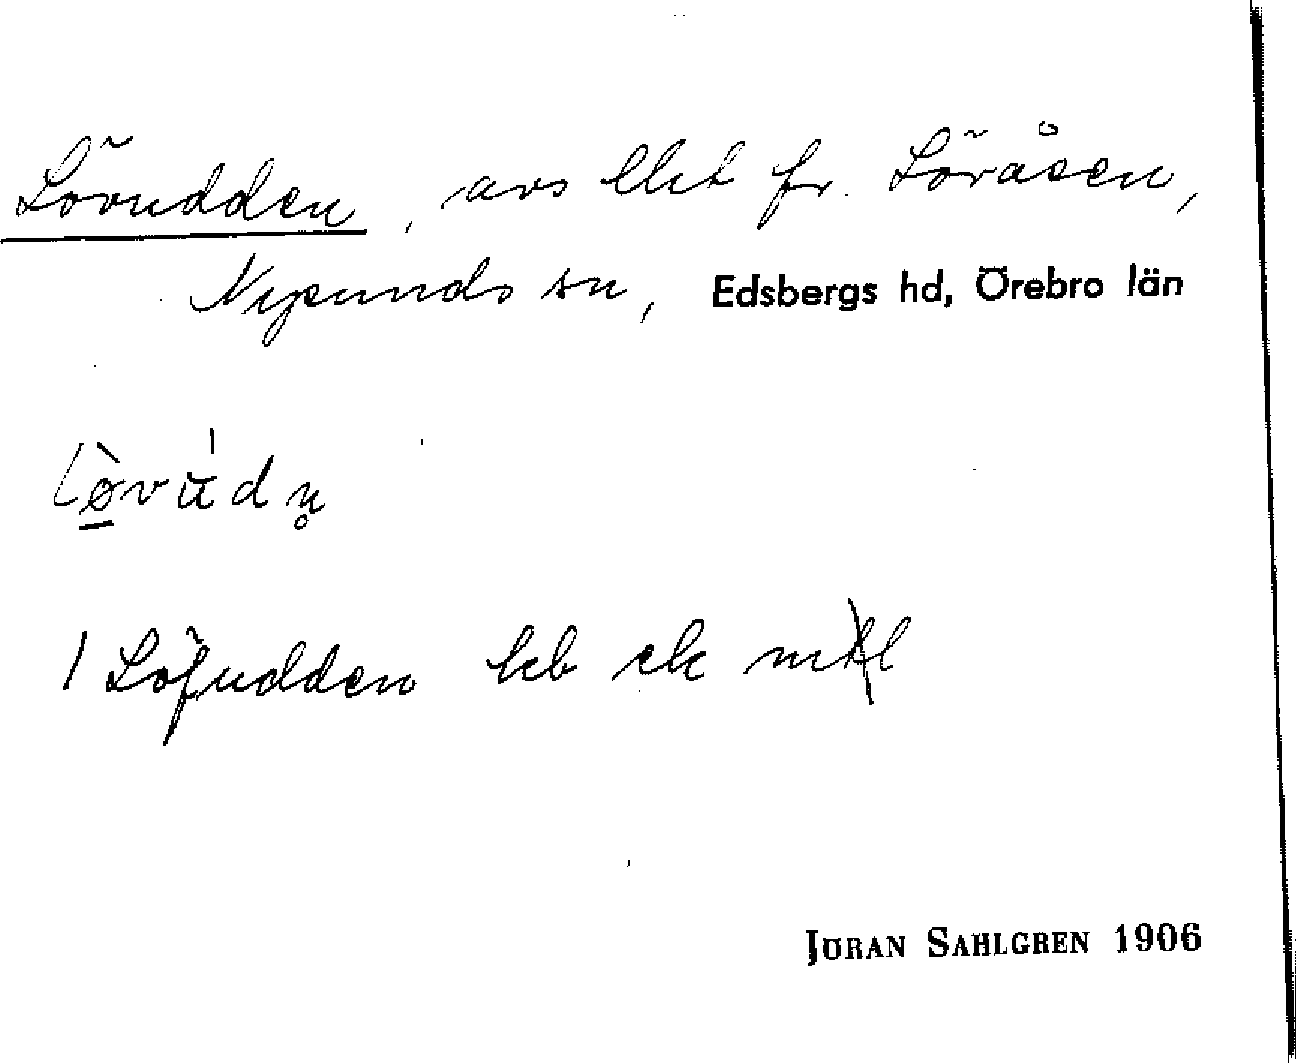 Lövudden, avs lht fr. Löråsen,
Nysunds sn, Edsbergs hd, Örebro län
lø̠̀vu̇́dn̥
1 Löfudden hb ek
JÖRAN SAHLGREN 1906